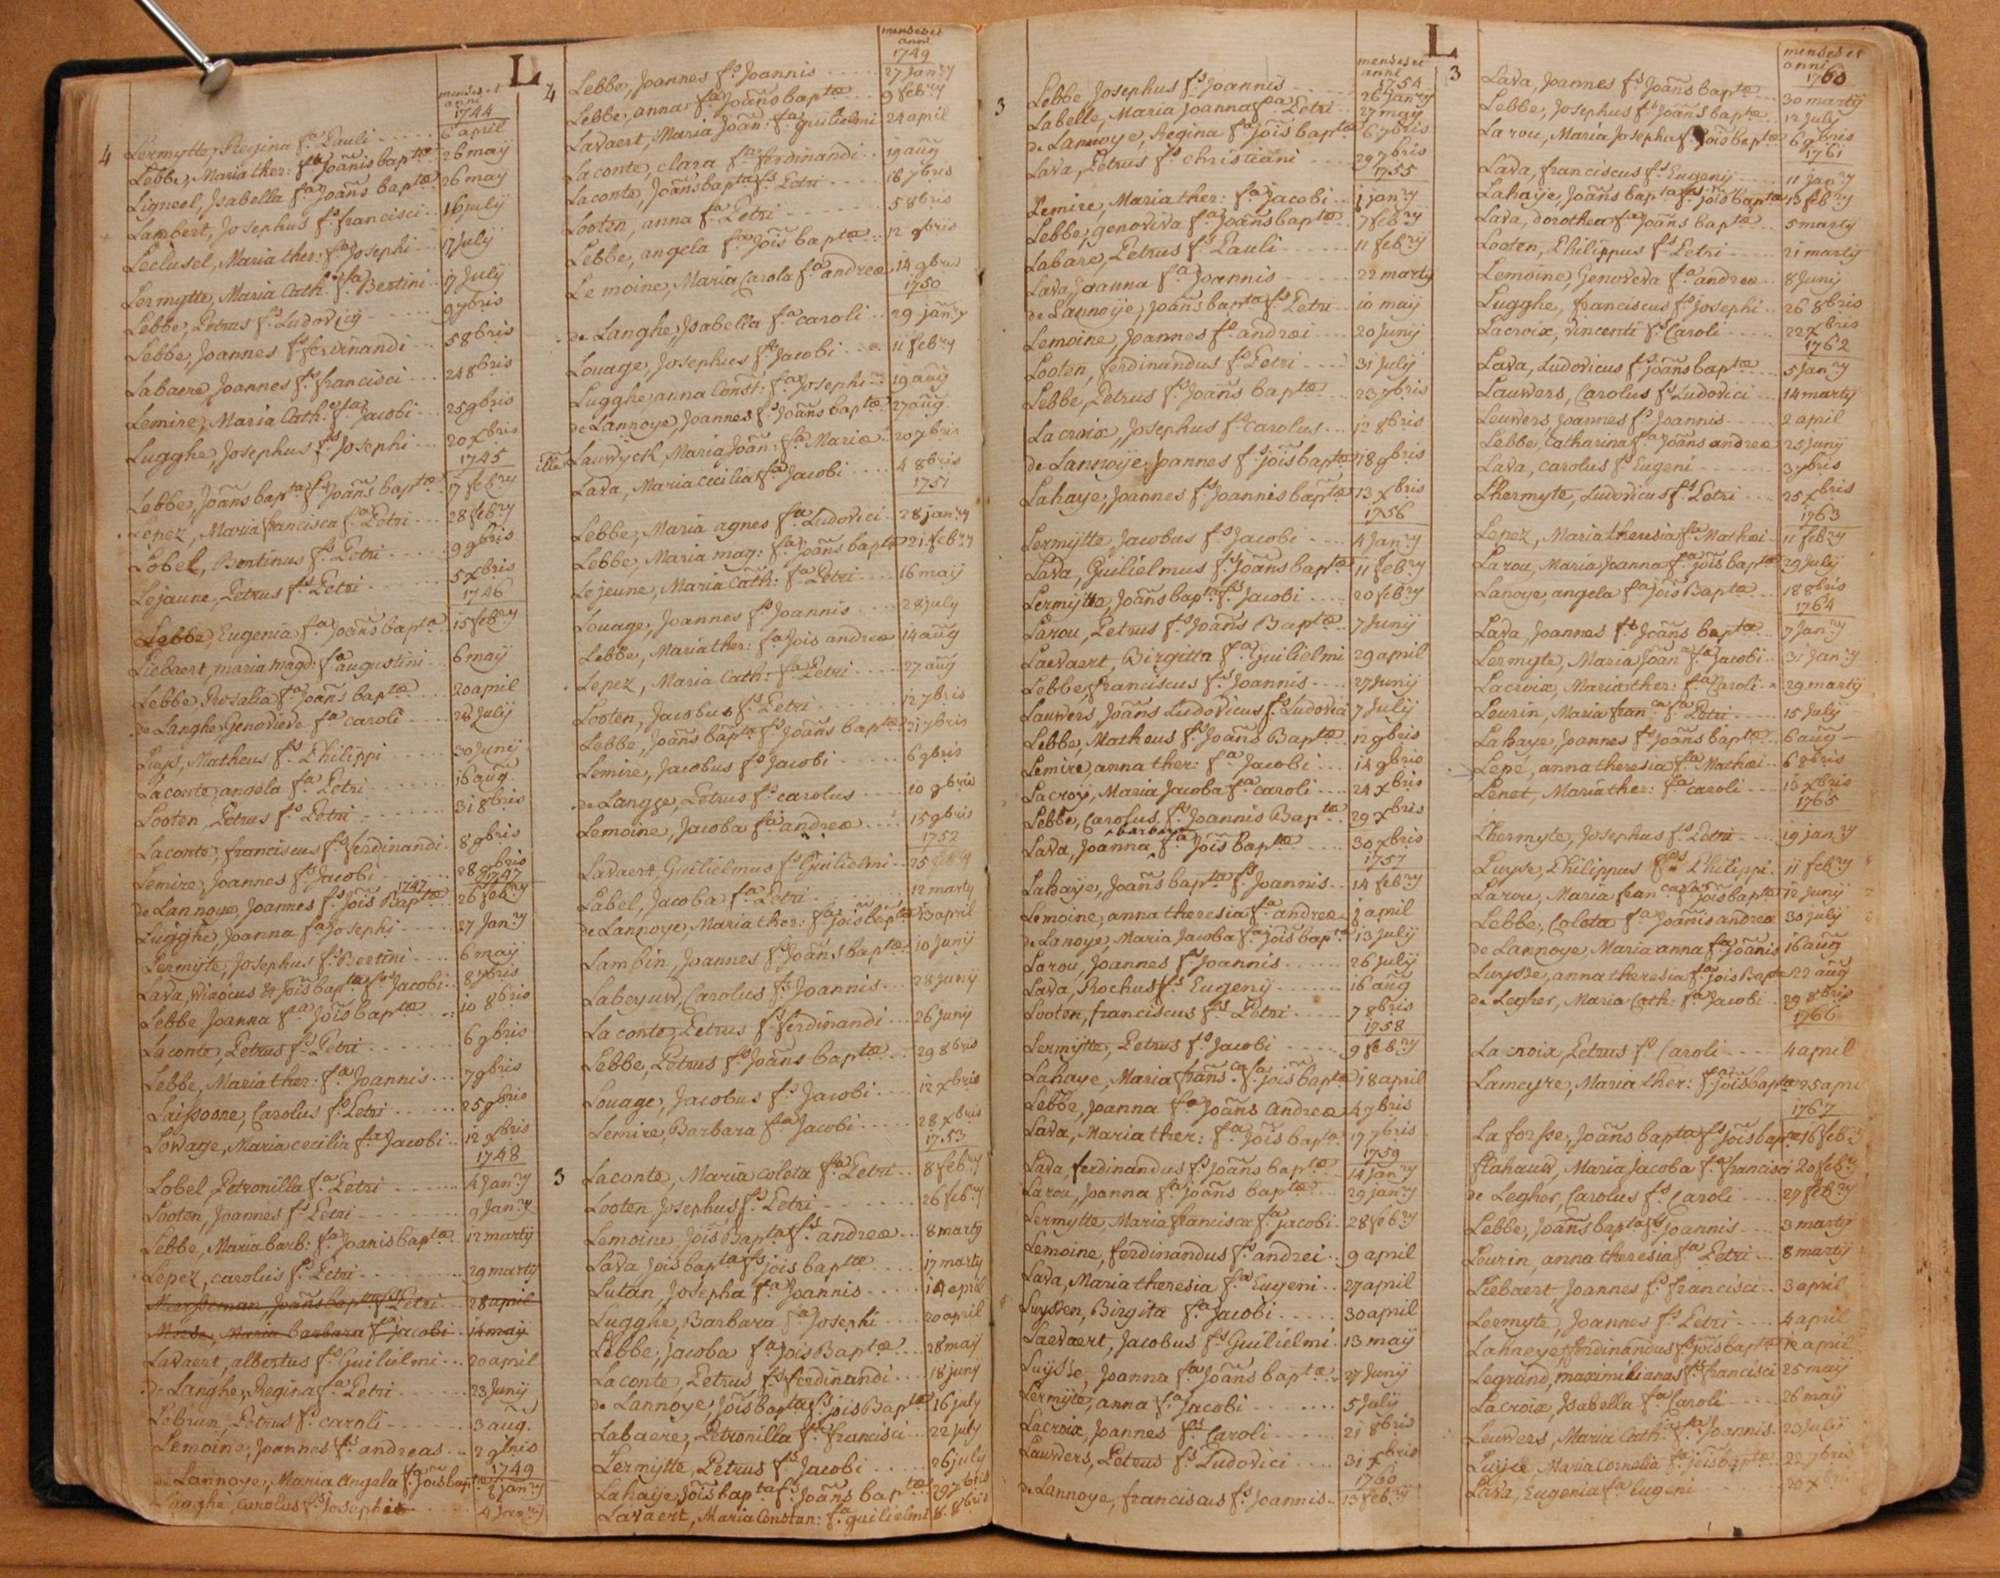 L
menses et
anni
1744
4 Lermytte, Regina fa Pauli 6 april
Lebbe, Maria ther: fa Joānis baptæ 26 maÿ
Ligneel, Isabella fa Joāns baptæ 26 maÿ
Lambert, Josephus fs francisci 16 julÿ
Leclusel, Maria ther: fa Josephi 17 Julÿ
Lermytte, Maria Cath. fa Bertini 17 Julÿ
Lebbe, Petrus fs Ludovicÿ 9 7bris
Lebbe, Joannes fs ferdinandi 5 8bris
Labaere Joannes fs francisci 24 8bris
Lemire, Maria Cath. fa Jacobi 25 9bris
Lugghe, Josephus fs Josephi 20 xbris
1745
Lebbe, Joāns bapta fs Joāns baptæ 17 febry
Lepez, Maria francisca fa Petri 28 febry
Lobel, Bertinus fs Petri 9 9bris
Lejaune, Petrus fs Petri 5 xbris
1746
Lebbe, Eugenia fa Joāns baptæ 15 febry
Liebaert, maria magd: fa augustini 6 maÿ
Lebbe Rosalia fa Joāns baptæ 20 april
de Langhe, Genovieve fa caroli 28 Julÿ
Luys, Matheus fs Philippi 30 Junÿ
Laconte, angela fa Petri 16 aug
Looten, Petrus fs Petri 31 8bris
Laconte, franciscus fs ferdinandi 8 9bris
Lemire, Joannes fs Jacobi 28 9bris
1747
de Lannoye, Joannes fs Jois Baptæ 26 febry
Lugghe, Joanna fa Josephi 27 Janry
Lermyte, Josephus fs Bertini 6 maÿ
Lava, Winocus et Joīs bapta fs Jacobi 8 7bris
Lebbe Joanna fa Joīs baptæ 10 8bris
Laconte, Petrus fs Petri 6 9bris
Lebbe, Maria ther: fa Joannis 7 9bris
Laissoone, Carolus fs Petri 25 9bris
Lowage, Maria cecilia fa Jacobi 12 xbris
1748
Lobel Petronilla fa Petri 4 Janry
Looten, Joannes fs Petri 9 Janry
Lebbe, Maria barb: fa Joanis baptæ 12 martÿ
Lepez, carolus fs Petri 29 martÿ
Joāns bapta fs Petri 28 april
Maria Barbara fa Jacobi 14 maÿ
Lavaert, albertus fs Guilielmi 20 april
de Langhe, Regina fa Petri 23 Junÿ
Lebrun, Petrus fs caroli 3 aug.
Lemoine, Joannes fs andreas 2 9bris
1749
de Lannoye, Maria Angela fa Joīs baptæ 2 janry
Langhe, carolus fs Josephi 4 Janry
menses et
anni
1749
4 Lebbe, Joannes fs Joannis 27 Janry
Lebbe, anna fa Joāns baptæ 9 febry
Lavaert, Maria Joān: fa Guilielmi 24 april
Laconte, clara fa ferdinandi 19 aug
Laconte, Joāns bapta fs Petri 18 7bris
Looten, anna fa Petri 5 8bris
Lebbe, angela fa Joīs baptæ 12 9bris
Le moine, Maria Carola fa andreæ 14 9bris
1750
de Langhe, Isabella fa caroli 29 janry
Louage, Josephus fs Jacobi 11 febry
Lugghe, anna Const: fa Josephi 19 aug
de Lannoye Joannes fs Joāns baptæ 27 aug
Lauwyck, Maria Joān: fa Mariæ 20 7bris
Lava, Maria cicilia fa Jacobi 4 8bris
1751
Lebbe, Maria agnes fa Ludovici 28 janry
Lebbe, Maria mag: fa Joāns baptæ 21 febry
Lejeune, Maria Cath: fa Petri 16 maÿ
Louage, Joannes fs Joannis 28 july
Lebbe, Maria ther: fa Jois andreæ 14 aug
Lepez, Maria Cath: fa Petri 27 aug
Looten, Jacobus fs Petri 12 7bris
Lebbe, Joāns bapta fs Joāns baptæ 21 7bris
Lemire, Jacobus fs Jacobi 6 9bris
de Lange, Petrus fs carolus 10 9bris
Lemoine, Jacoba fa andreæ 15 9bris
1752
Lavaert, Guilielmus fs Guilielmi 25
Label, Jacoba fa Petri 12 martÿ
de Lannoye, Maria ther: fa Joīs baptæ 13 april
Lambin, Joannes fs Joāns baptæ 10 Junÿ
Labeyuw, Carolus fs Joannis 28 junÿ
Laconte, Petrus fs ferdinandi 26 junÿ
Lebbe, Petrus fs Joāns baptæ 29 8bris
Louage, Jacobus fs Jacobi 12 xbris
Lemire, Barbara fa Jacobi 28 xbris
1753
3 Laconte, Maria coleta fa Petri 8 febry
Looten Josephus fs Petri 26 febry
Lemoine, Joīs Bapta fs andreæ 8 martÿ
Lava Joīs bapta fs jois baptæ 17 martÿ
Lutan, Josepha fa Joannis 19 april
Lugghe, Barbara fa Josephi 20 april
Lebbe, Jacoba fa Jois Baptæ 28 maÿ
Laconte, Petrus fs ferdinandi 18 junÿ
de Lannoye, Joīs bapta fs jois Baptæ 16 july
Labaere, Petronilla fa francisci 22 july
Lermytte, Petrus fs Jacobi 26 july
Lahaije, Joīs bapta fs Joāns baptæ 29 7bris
Lavaert, Maria Constan: fa guilielmi 8 8bris
L
3
menses et
anni
1754
3 Lebbe Josephus fs Joannis 26 Janry
Labelle, Maria Joanna fa Petri 27 maÿ
de Lannoye, Regina fa Joīs baptæ 6 7bris
Lava, Petrus fs christiani 29 7bris
1755
Lemire, Maria ther: fa Jacobi 1 janry
Lebbe, genoviva fa Joāns baptæ 7 febry
Labare, Petrus fs Pauli 11 febry
Lava Joanna fa Joannis 22 martÿ
de Lannoÿe, Joāns bapta fs Petri 10 maÿ
Lemoine, Joannes fs andræi 20 junÿ
Looten, ferdinandus fs Petri 31 Julÿ
Lebbe, Petrus fs Joāns baptæ 23 7bris
Lacroix, Josephus fs carolus 12 8bris
de Lannoÿe, Joannes fs joīs baptæ 18 9bris
Lahaye, Joannes fs Joannis baptæ 13 xbris
1756
Lermÿtte Jacobus fs Jacobi 4 Janry
Lava, Guilielmus fs Joāns baptæ 11 febry
Lermÿtte, Joāns bapta fs Jacobi 20 febry
Larou, Petrus fs Joāns Baptæ 7 Junÿ
Laevaert, Birgitta fa Guilielmi 29 april
Lebbe, franciscus fs Joannis 27 Junÿ
Lauwers Joāns Ludovicus fs Ludovici 7 Julÿ
Lebbe, Matheus fs Joāns Baptæ 12 9bris
Lemire, anna ther: fa Jacobi 14 9bris
Lacroÿ, Maria Jacoba fa caroli 24 xbris
Lebbe, Carolus fs Joannis Baptæ 29 xbris
barbara
Lava, Joanna fa Joīs baptæ 30 xbris
1757
Lahaÿe, Joāns bapta fs Joannis 14 febry
Lemoine, anna theresia fa andreæ 1 april
de Lanoye, Maria Jacoba fa joīs baptæ 13 Julÿ
Larou, Joannes fs Joannis 26 julÿ
Lava, Rochus fs Eugenÿ 16 aug
Looten, franciscus fs Petri 7 8bris
1758
Lermÿtte, Petrus fs Jacobi 9 febry
Lahaye, Maria frānsca fa joīs baptæ 18 april
Lebbe, Joanna fa Joāns Andreæ 4 7bris
Lava, Maria ther: fa Joīs baptæ 17 7bris
1759
Lava, ferdinandus fs Joāns baptæ 14 janry
Larou, Joanna fa Joāns baptæ 29 janry
Lermytte, Maria francisca fa jacobi 28 febry
Lemoine, ferdinandus fs andrei 9 april
Lava, Maria theresia fa Eugeni 27 april
Luyssen, Birgita fa Jacobi 30 april
Laevaert, Jacobus fs Guilielmi 13 maÿ
Luÿsse, Joanna fa Joāns baptæ 27 Junÿ
Lermÿte, anna fa Jacobi 5 Julÿ
Lacroix, Joannes fs Caroli 21 8bris
Lauwers, Petrus fs Ludovici 31 xbris
1760
de Lannoye, franciscus fs Joannis 13 febry
menses et
anni
1760
Lava, Joannes fs Joāns baptæ 30 martÿ
Lebbe, Josephus fs Joāns baptæ 12 julÿ
Larou, Maria Josepha fa Jois baptæ 6 9bris
1761
Lava, franciscus fs Eugenÿ 11 janry
Lahaÿe, Joāns bapta fs joīs baptæ 13 febry
Lava, dorothea fa Joāns baptæ 5 martÿ
Looten, Philippus fs Petri 21 martÿ
Lemoine, Genoveva fa andreæ 8 Junÿ
Lugghe, franciscus fs Josephi 26 8bris
Lacroix, vincenti fs Caroli 22 xbris
1762
Lava, Ludovicus fs Joāns baptæ 5 Janry
Lauwers, Carolus fs Ludovici 14 martÿ
Leuwers Joannes fs Joannis 2 april
Lebbe, Catharina fa Joāns andreæ 25 Junÿ
Lava, carolus fs Eugeni 3 7bris
Lhermyte, Ludovicus fs Petri 25 xbris
1763
Lepez, Maria theresia fa Mathæi 11 febry
Larou, Maria Joanna fa joīs baptæ 29 july
Lanoye, angela fa Joīs Baptæ 18 8bris
1764
Lava, Joannes fs Joāns baptæ 7 Janry
Lermyte, Maria Joāna fa Jacobi 31 Janry
Lacroix, Maria ther: fa Caroli 29 martÿ
Leurin, Maria franca fa Petri 15 Julÿ
Lahaye, Joannes fs Joāns baptæ 6 aug
Lepé, anna theresia fa Mathæi 6 8bris
Lenet, Maria ther: fa caroli 13 xbris
1765
Lhermyte, Josephus fs Petri 19 janry
Luyse, Philippus fs Philippi 11 febry
Larou, Maria franca fa Joīs baptæ 12 junÿ
Lebbe, Coleta fa Joānis andreæ 30 julÿ
de Lannoye Maria anna fa Joānis 16 aug
Luysse, anna theresia fa jois Baptæ 22 aug
de Legher, Maria Cath: fa Jacobi 29 8bris
1766
Lacroix, Petrus fs Caroli 4 april
Lameyre, Maria ther: fa joīs baptæ 25 april
1767
La forsse, Joāns bapta fs Joīs baptæ 16 febry
Maria Jacoba fa francisci 20 febry
de Legher, Carolus fs Caroli 27 febry
Lebbe, Joāns bapta fs Joannis 3 martÿ
Leurin, anna theresia fa Petri 8 martÿ
Liebaert, Joannes fs francisci 3 april
Lermyte, Joannes fs Petri 4 april
Lahaeye, ferdinandus fs joīs baptæ 12 april
Legrand, maximilianus fs francisci 25 maÿ
Lacroix, Isabella fa Caroli 26 maÿ
Leuwers, Maria Cath: fa Joannis 20 Julÿ
Luyce Maria Cornelia fa Joīs baptæ 22 7bris
Lava, Eugenia fa Eugeni 20 xbris